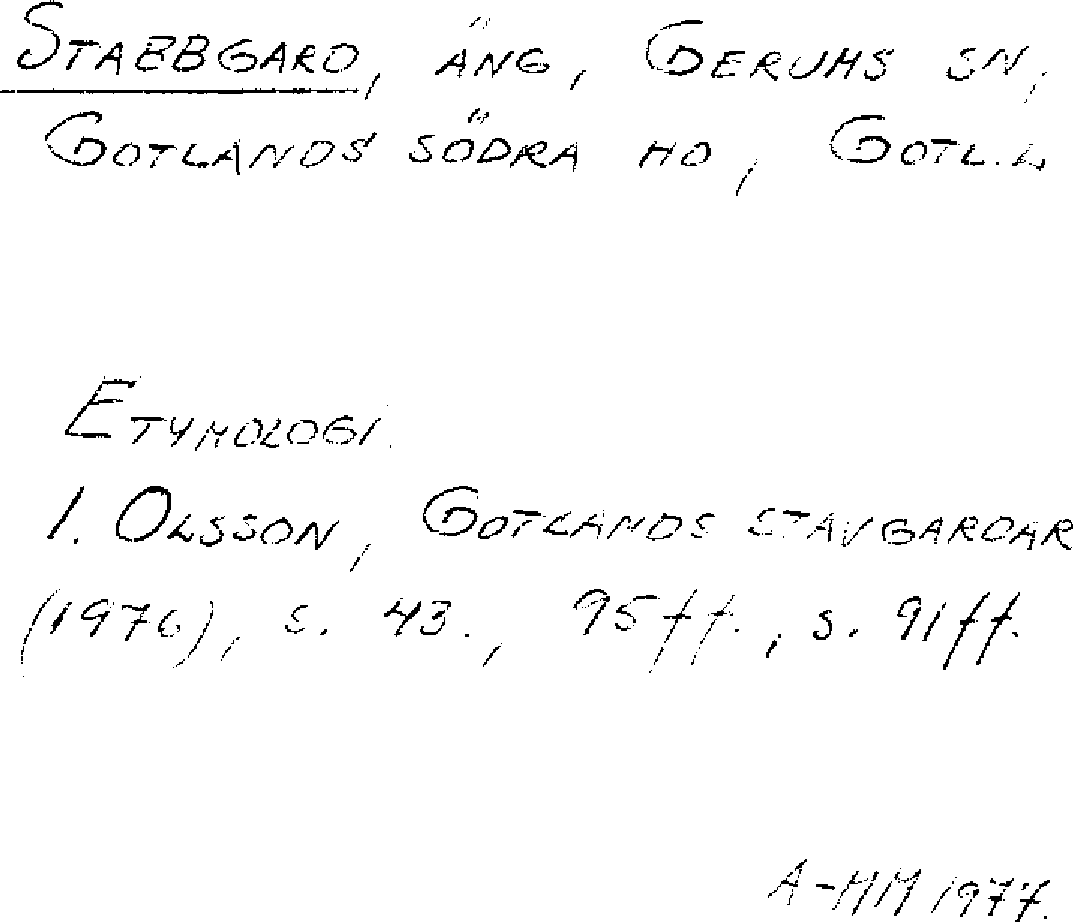 STABBGARD, ÄNG, GERUMS SN,
GOTLANDS SÖDRA HD, GOTL.L
ETYMOLOGI.
I. OLSSON, GOTLANDS STAVGARDAR
(1976), s. 43., 95ff., s. 91ff.
A-MM 1977.